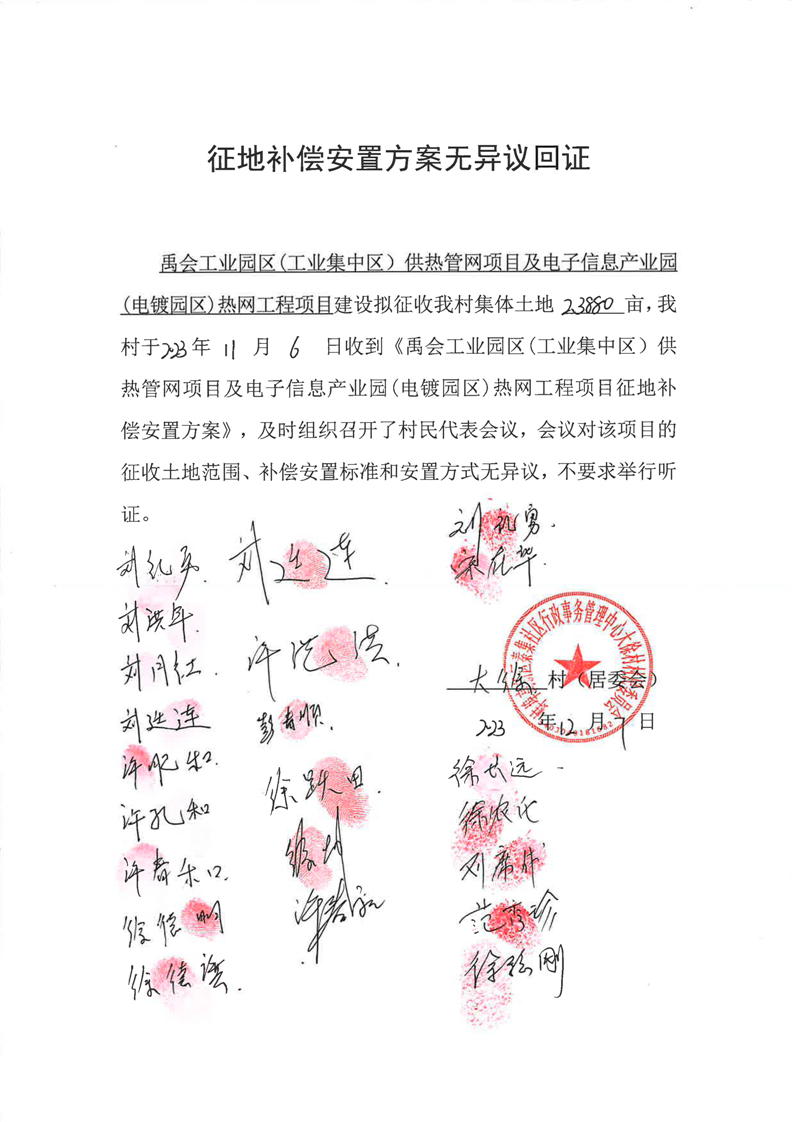 征地补偿安置方案无异议回证
禹会工业园区(工业集中区）供热管网项目及电子信息产业园
(电镀园区)热网工程项目建设拟征收我村集体土地 2.3880 亩，我
村于2023年 11 月 6 日收到《禹会工业园区(工业集中区）供
热管网项目及电子信息产业园(电镀园区)热网工程项目征地补
偿安置方案》，及时组织召开了村民代表会议，会议对该项目的
征收土地范围、补偿安置标准和安置方式无异议，不要求举行听
证。
刘礼勇
刘洪年
刘月红
许孔和
许春
徐德明
徐德
徐跃田
大徐 村（居委会）
2023 年12 月 7 日
徐长远
徐农化
刘席伟
范秀珍
刚
秦集社区行政事务管理中心大徐村村民委员会